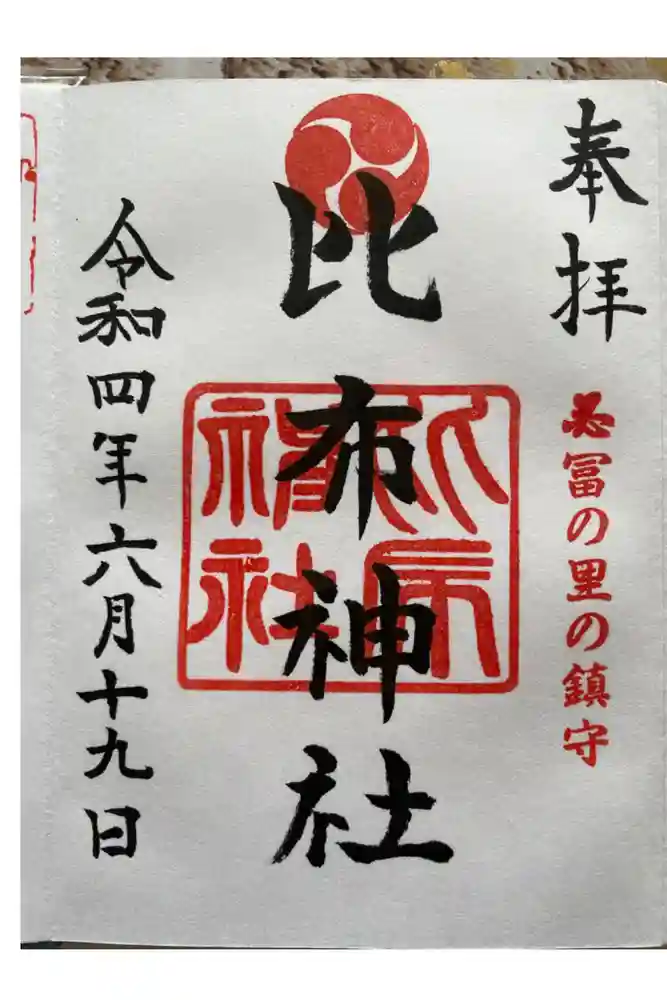 奉拝
冨の里の鎮守
比布神社
比布
神社
令和四年六月十九日